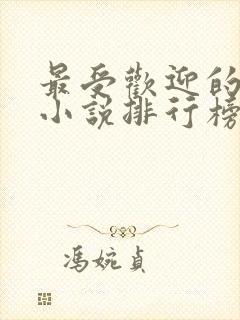 最受歡迎的
小說排行榜
馮婉貞